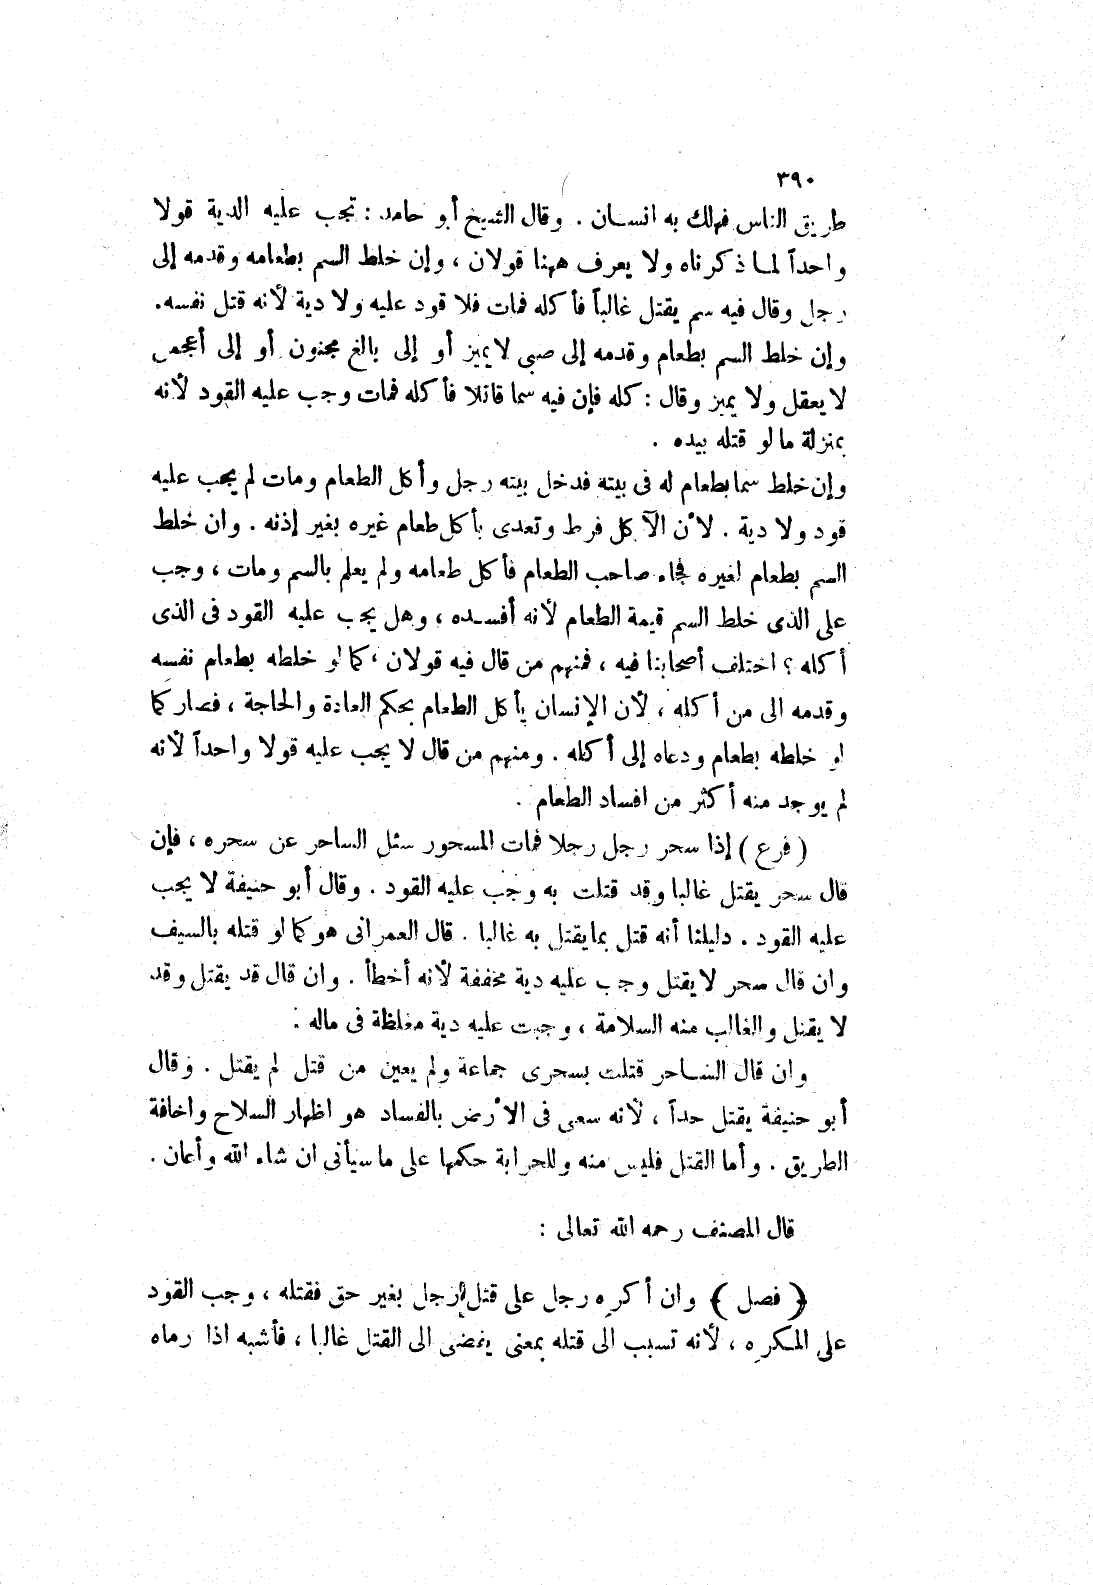 ٣٩٠
طريق الناس فهلك به انسان . وقال الشيخ أبو حامد : تجب عليه الدية قولا
واحداً لما ذكرناه ولا يعرف ههنا قولان ، وإن خلط السم بطعامه وقدمه إلى
رجل وقال فيه سم يقتل غالباً فأكله فمات فلا قود عليه ولا دية لأنه قتل نفسه .
وإن خلط السم بطعام وقدمه إلى صبى لا يميز أو إلى بالغ مجنون أو إلى أعجمى
لا يعقل ولا يميز وقال : كله فإن فيه سما قاتلا فأكله فمات وجب عليه القود لأنه
بمنزلة ما لو قتله بيده .
وإن خلط سما بطعام له فى بيته فدخل بيته رجل وأكل الطعام ومات لم يجب عليه
قود ولا دية . لأن الآكل فرط وتعدى بأكل طعام غيره بغير إذنه . وان خلط
السم بطعام لغيره فجاء صاحب الطعام فأكل طعامه ولم يعلم بالسم ومات ، وجب
على الذى خلط السم قيمة الطعام لأنه أفسده ، وهل يجب عليه القود فى الذى
أكله ؟ اختلف أصحابنا فيه ، فمنهم من قال فيه قولان ، كما لو خلطه بطعام نفسه
وقدمه الى من أكله ، لأن الإنسان يأكل الطعام بحكم العادة والحاجة ، فصار كما
لو خلطه بطعام ودعاه إلى أكله . ومنهم من قال لا يجب عليه قولا واحداً لأنه
لم يوجد منه أكثر من افساد الطعام .
( فرع ) إذا سحر رجل رجلا فمات المسحور سئل الساحر عن سحره ، فإن
قال سحر يقتل غالبا وقد قتلت به وجب عليه القود . وقال أبو حنيفة لا يجب
عليه القود . دليلنا أنه قتل بما يقتل به غالبا . قال العمرانى هو كما لو قتله بالسيف
وان قال سحر لا يقتل وجب عليه دية مخففة لأنه أخطأ . وان قال قد يقتل وقد
لا يقتل والغالب منه السلامة ، وجبت عليه دية مغلظة فى ماله .
وان قال الساحر قتلت بسحرى جماعة ولم يعين من قتل لم يقتل . وقال
أبو حنيفة يقتل حداً ، لأنه سعى فى الأرض بالفساد هو اظهار السلاح واخافة
الطريق . وأما القتل فليس منه وللحرابة حكمها على ما سيأتى ان شاء الله وأعان .
قال المصنف رحمه الله تعالى :
( فصل ) وان أكره رجل على قتل رجل بغير حق فقتله ، وجب القود
على المكره ، لأنه تسبب الى قتله بمعنى يفضى الى القتل غالبا ، فأشبه اذا رماه